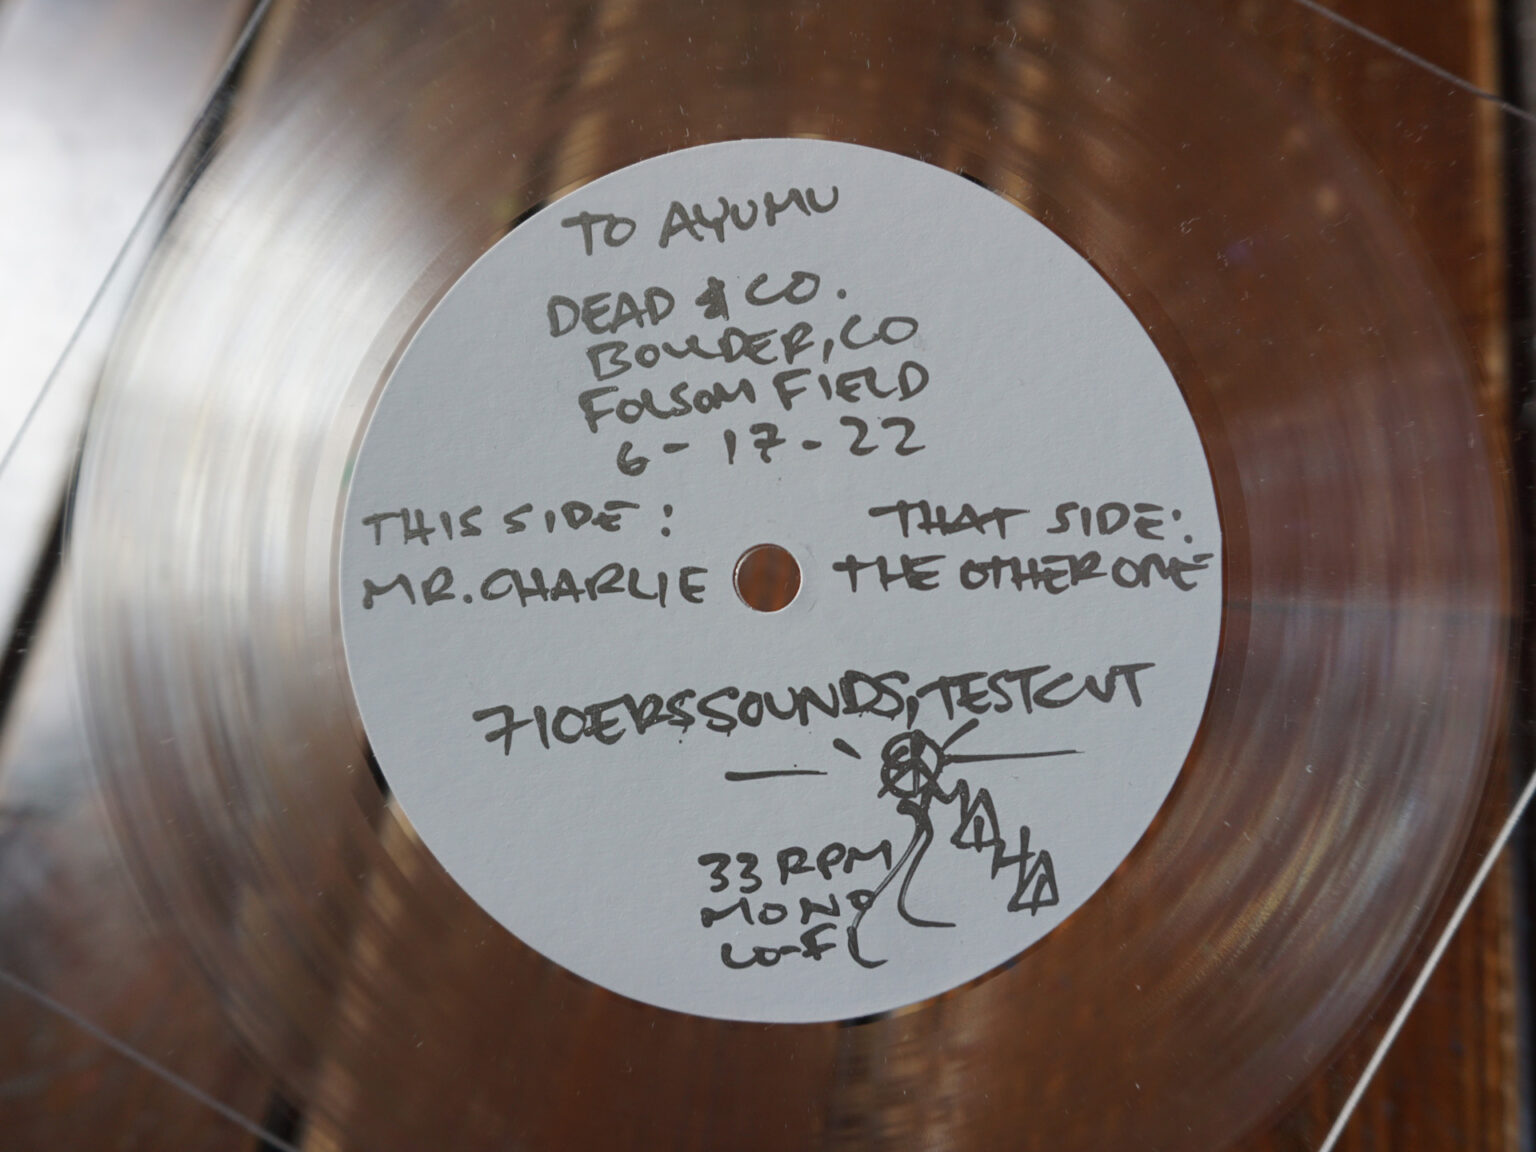 TO AYUMU
DEAD & CO.
BOULDER, CO
FOLSOM FIELD
6-17-22
THIS SIDE:
MR. CHARLIE
THAT SIDE:
THE OTHER ONE
TESTCUT
33 RPM
MONO
LO-FI